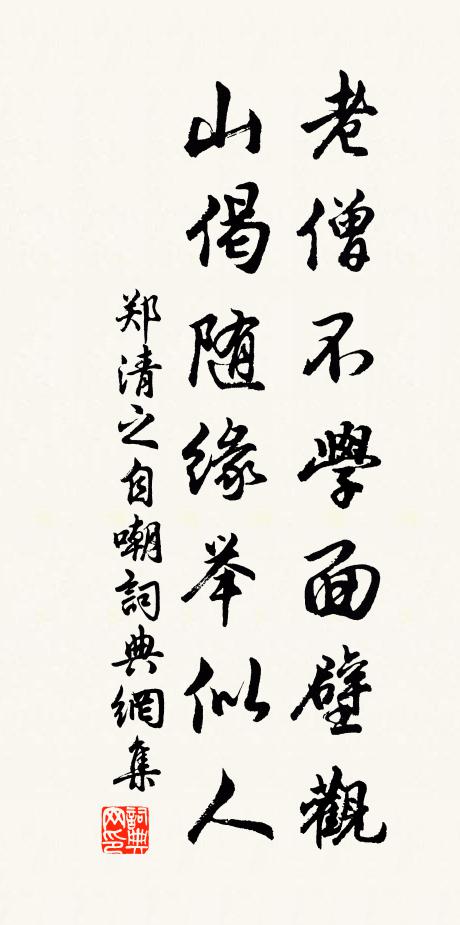 老僧不學面壁觀
山偈随缘举似人
郑清之自嘲詞典網集
詞典網印